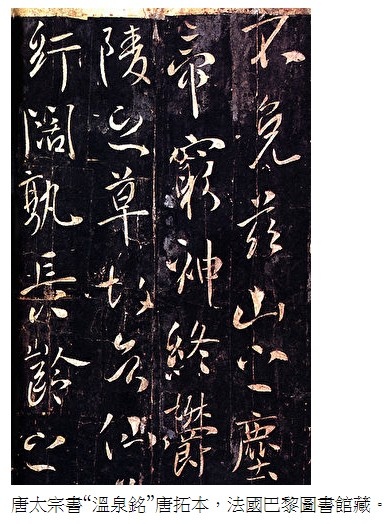 不免茲山之塵
帝窮神終鬱
陵之草故仙
行闊孰長齡之
唐太宗書“溫泉銘”唐拓本，法國巴黎圖書館藏。